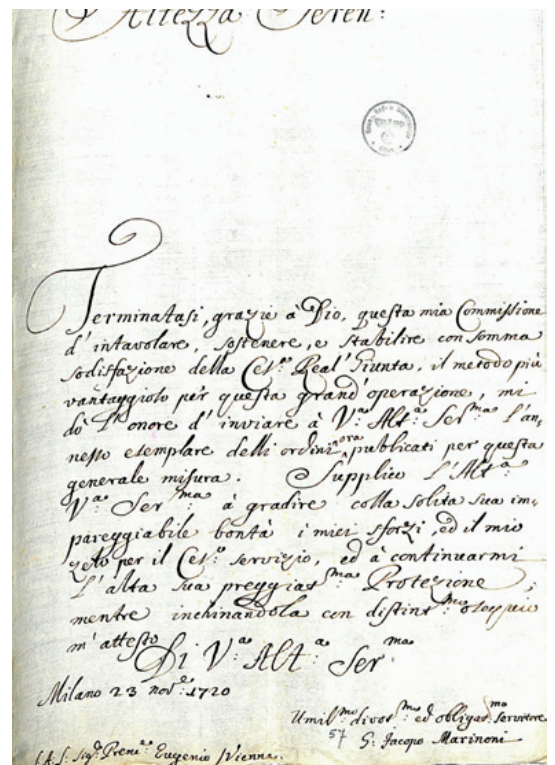 Altezza Seren:
Terminatasi, grazie à Dio, questa mia Commissione
d'intavolare, sostenere, e stabilire con somma
sodisfazione della Ces.ª Real' Giunta, il metodo più
vantaggioso per questa grand'operazione, mi
dò l'onore d'inviare à V.ª Alt.ª Ser.ma l'an„
nesso esemplare delli ordini ora publicati per questa
generale misura. Supplico l'Alt.ª
V.ª Ser.ma à gradire colla solita sua im„
pareggiabile bontà i miei sforzi, ed il mio
zelo per il Ces.º servizio, ed à continuarmi
l'alta sua preggiat.ma Protezione;
mentre inchinandola con distint.mo ossequio
m'attesto
Di V.ª Alt.ª Ser.ma
Milano 23 nov.e 1720
Umil.mo divot.mo ed obligat.mo servitore
57
G: Jacopo Marinoni
S.A.S: Sig.r Prene Eugenio Vienna.